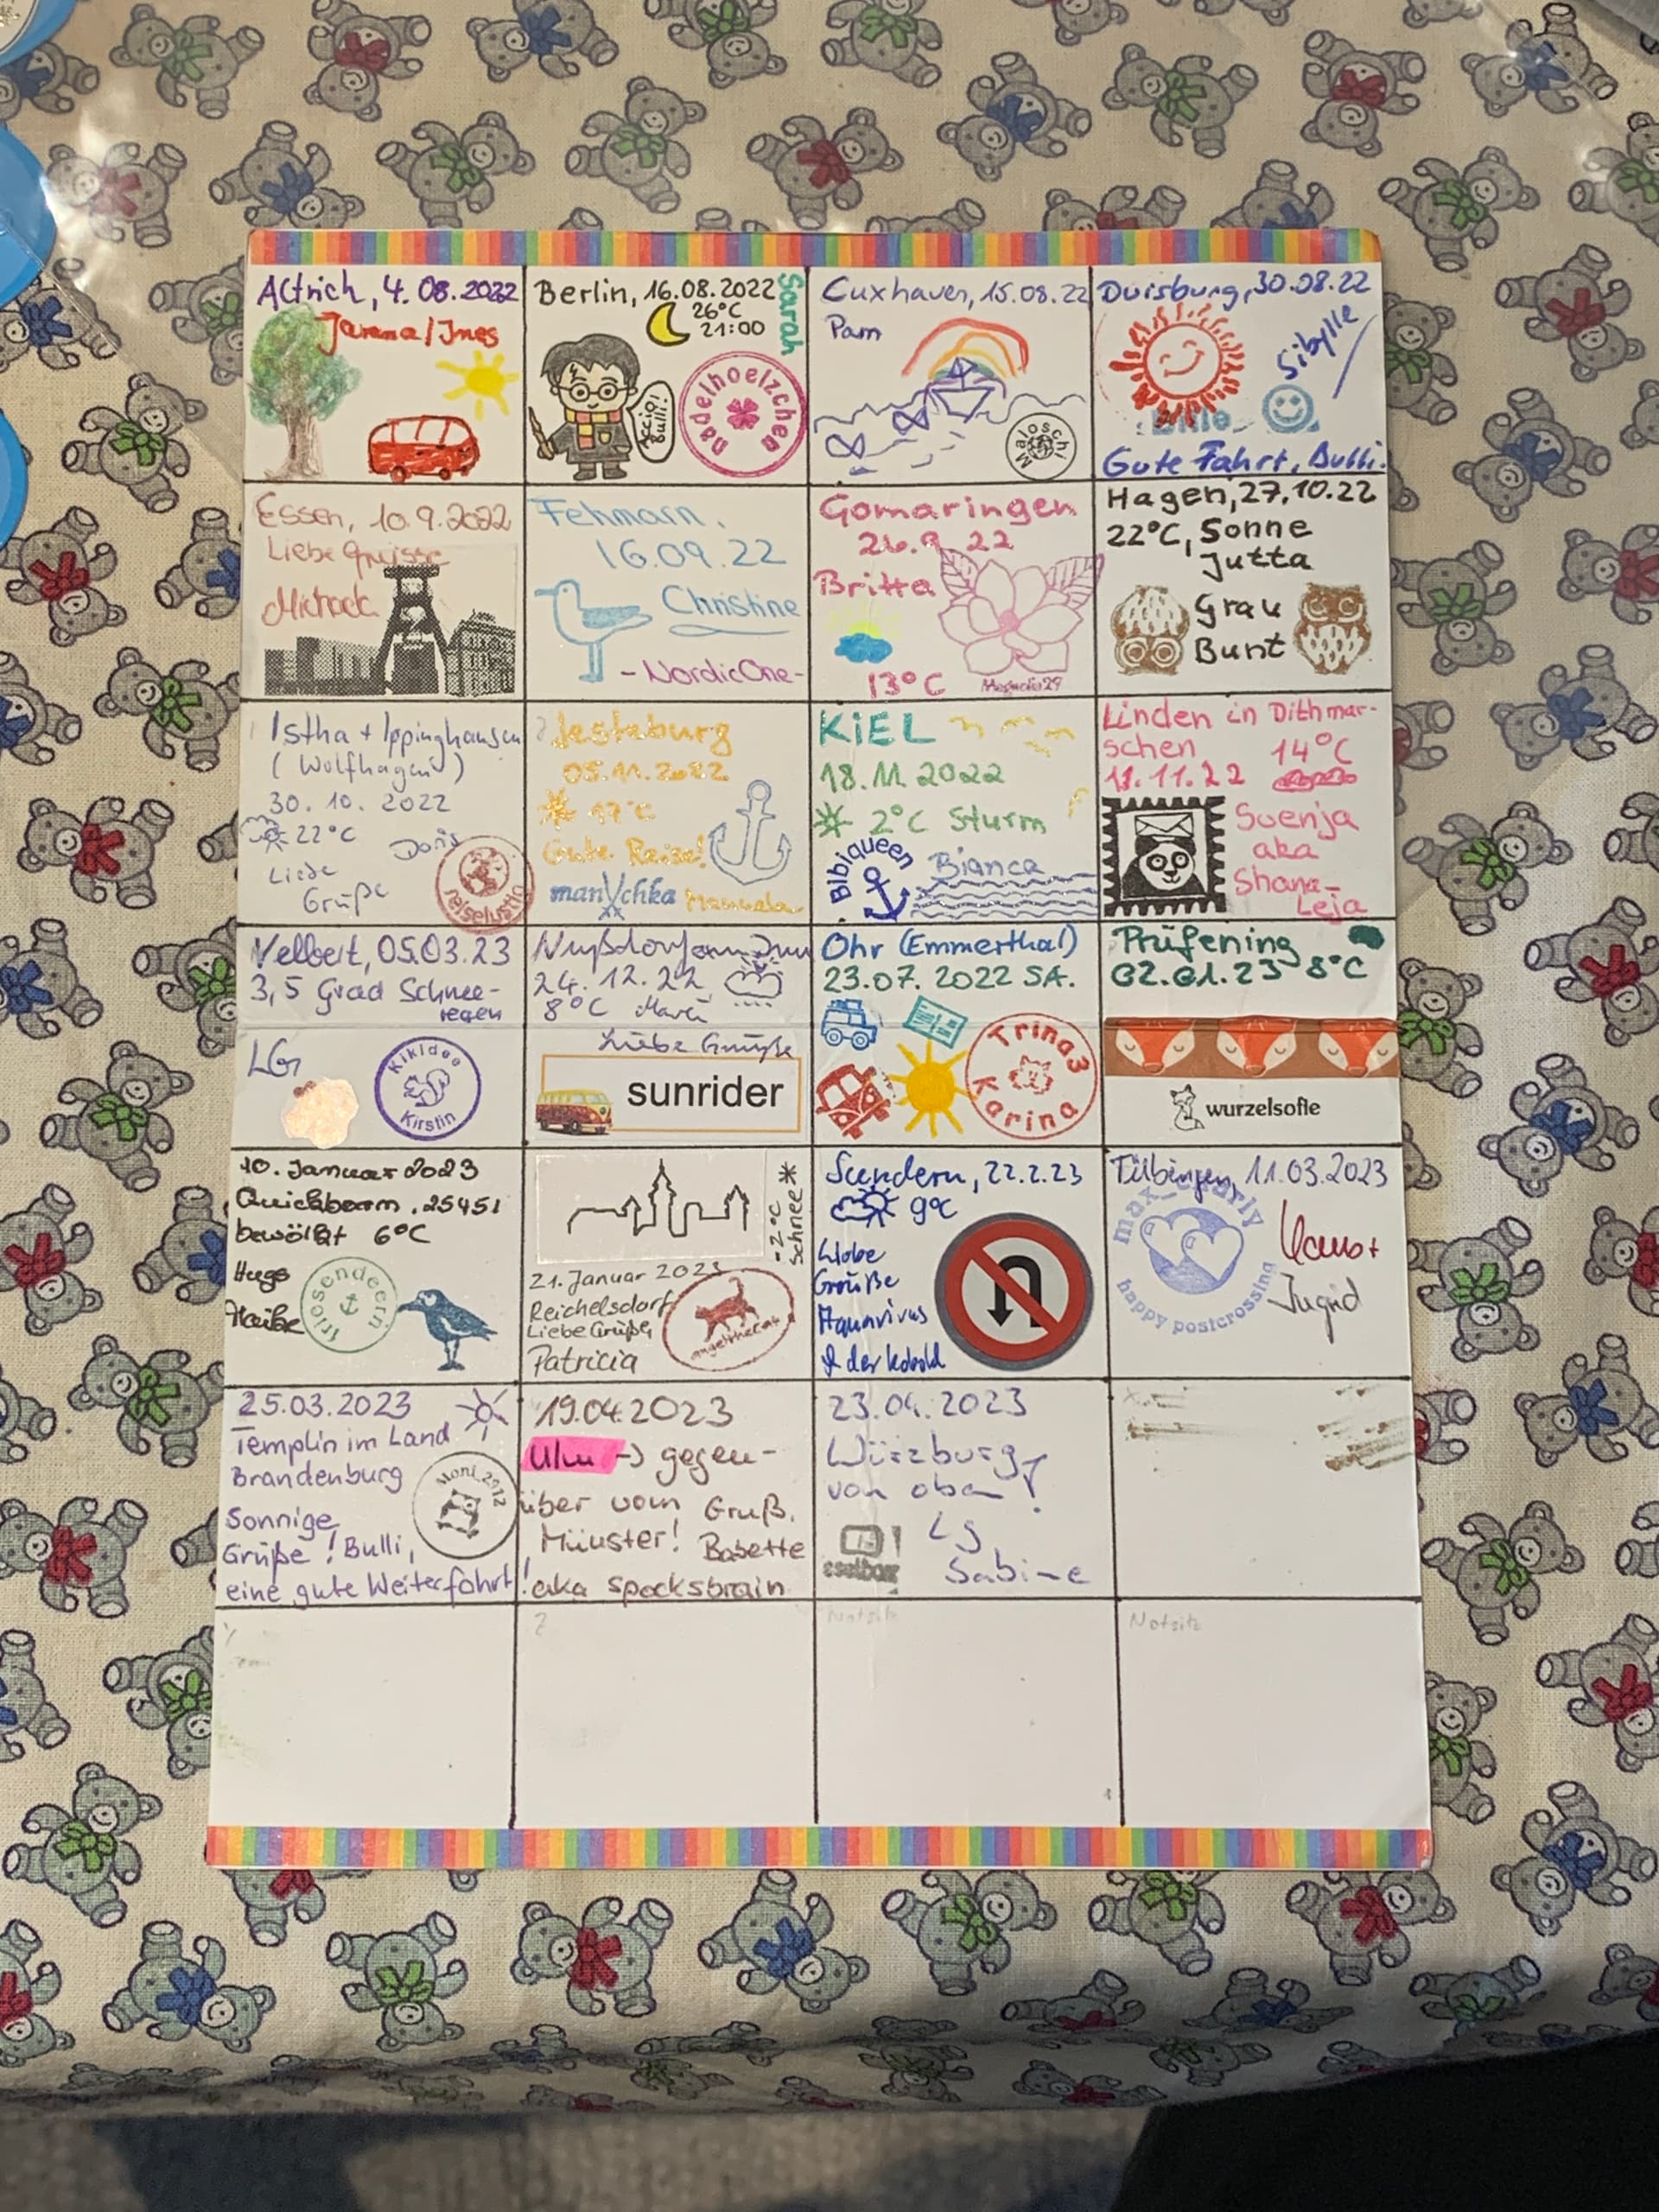 Altrich, 4.08.2022
Jamma/Ines
Berlin, 16.08.2022
Sarah
26°C
21:00
Accio Bulli!
nadelhoelzchen
Cuxhaven, 15.08.22
Pam
Maloschi
Duisburg, 30.08.22
Sibylle
Gute Fahrt, Bulli.
Essen, 10.9.2022
Liebe Grüsse
Fehmarn,
16.09.22
Christine
- NordicOne -
Gomaringen
26.9.22
Britta
13°C
Magnolia29
Hagen, 27.10.22
22°C, Sonne
Jutta
Grau
Bunt
Istha + Ippinghausen
(Wolfhagen)
30.10.2022
22°C
Doris
Liebe
Grüße
reiselustig
Jesteburg
05.11.2022
17°C
Gute Reise!
manYchka
Manuela
KiEL
18.11.2022
2°C Sturm
Bibiqueen
Bianca
Linden in Dithmar-
schen 14°C
11.11.22
Svenja
aka
Shana-
Leja
Velbert, 05.03.23
3,5 Grad Schnee-
regen
LG
KikIdee
Kirstin
Nußdorf am Inn
24.12.22
8°C
Liebe Grüße
sunrider
Ohr (Emmerthal)
23.07.2022 SA.
Trina3
Karina
Prüfening
02.01.23 8°C
wurzelsofie
10. Januar 2023
Quickborn, 25451
bewölkt 6°C
Hugs
Heike
friesendeern
-2°C
Schnee
21. Januar 2023
Reichelsdorf
Liebe Grüße
Patricia
angelthecat
Sundern, 22.2.23
9°C
Liebe
Grüße
Aquarivus
& der Kobold
Tübingen, 11.03.2023
max_charly
happy postcrossing
Klaus +
Ingrid
25.03.2023
Templin im Land
Brandenburg
Moni_2912
Sonnige
Grüße! Bulli,
eine gute Weiterfahrt!
19.04.2023
Ulm -> gegen-
über vom Gruß,
Münster! Babette
aka specksbrain
23.04.2023
Würzburg
von oben!
LG
Sabine
eselbox
?
Notsitz
Notsitz